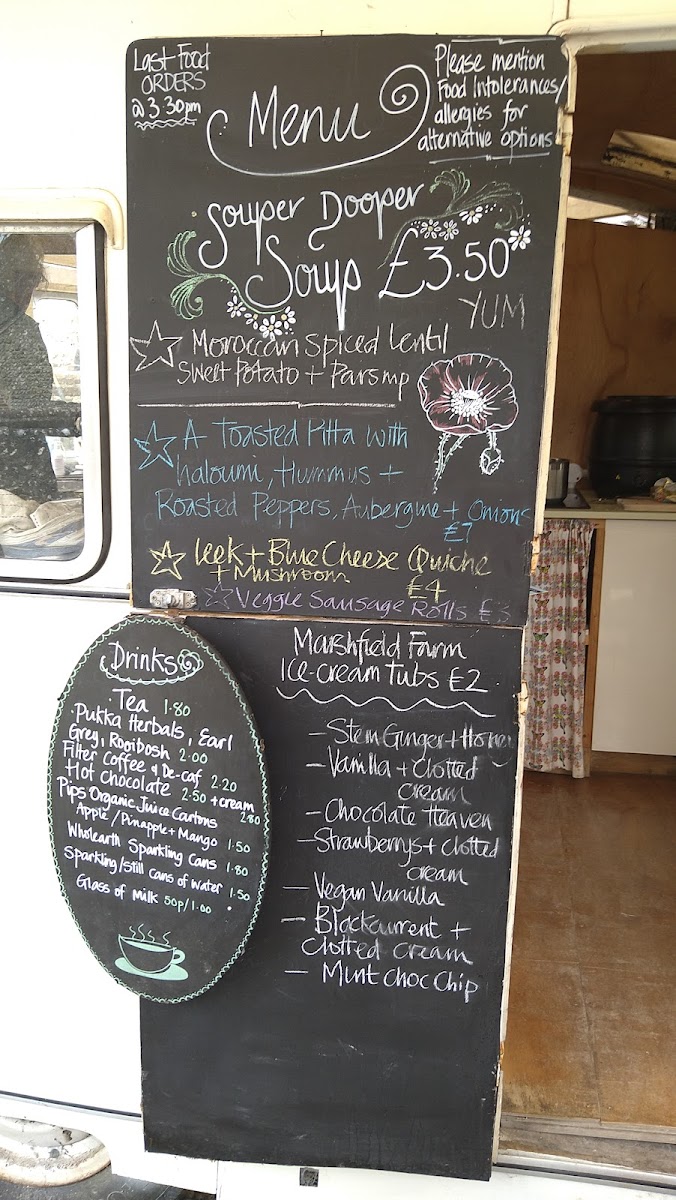 Last Food
ORDERS
@ 3.30pm
Menu
Please mention
Food Intolerances/
allergies for
alternative options
Souper Dooper
Soups £3.50
YUM
Moroccan Spiced Lentil
Sweet Potato + Parsnip
A Toasted Pitta with
haloumi, Hummus +
Roasted Peppers, Aubergine + Onions
£7
leek + Blue Cheese Quiche
+ Mushroom £4
Veggie Sausage Rolls £3
Drinks
Tea 1.80
Pukka Herbals, Earl
Grey, Rooibosh 2.00
Filter Coffee & De-caf 2.20
Hot chocolate 2.50 + cream
2.80
Pips Organic Juice Cartons
Apple / Pinapple + Mango 1.50
Wholearth Sparkling Cans 1.80
Sparkling/Still cans of water 1.50
Glass of milk 50p/1.00
Marshfield Farm
Ice-cream Tubs £2
- Stem Ginger + Honey
- Vanilla + Clotted
cream
- Chocolate Heaven
- Strawberrys + Clotted
cream
- Vegan Vanilla
- Blackcurrent +
Clotted cream
- Mint Choc Chip